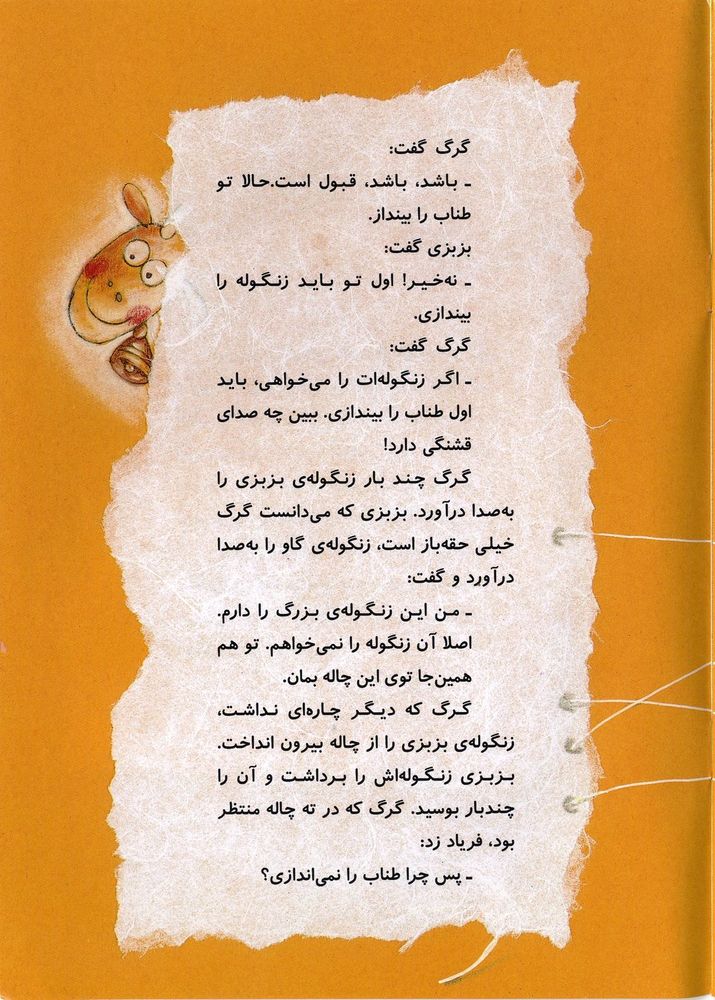 گرگ گفت:
ـ باشد، باشد، قبول است.حالا تو
طناب را بینداز.
بزبزی گفت:
ـ نه‌خیر! اول تو باید زنگوله را
بیندازی.
گرگ گفت:
ـ اگر زنگوله‌ات را می‌خواهی، باید
اول طناب را بیندازی. ببین چه صدای
قشنگی دارد!
گرگ چند بار زنگوله‌ی بزبزی را
به‌صدا درآورد. بزبزی که می‌دانست گرگ
خیلی حقه‌باز است، زنگوله‌ی گاو را به‌صدا
درآورد و گفت:
ـ من این زنگوله‌ی بزرگ را دارم.
اصلا آن زنگوله را نمی‌خواهم. تو هم
همین‌جا توی این چاله بمان.
گرگ که دیگر چاره‌ای نداشت،
زنگوله‌ی بزبزی را از چاله بیرون انداخت.
بزبزی زنگوله‌اش را برداشت و آن را
چندبار بوسید. گرگ که در ته چاله منتظر
بود، فریاد زد:
ـ پس چرا طناب را نمی‌اندازی؟